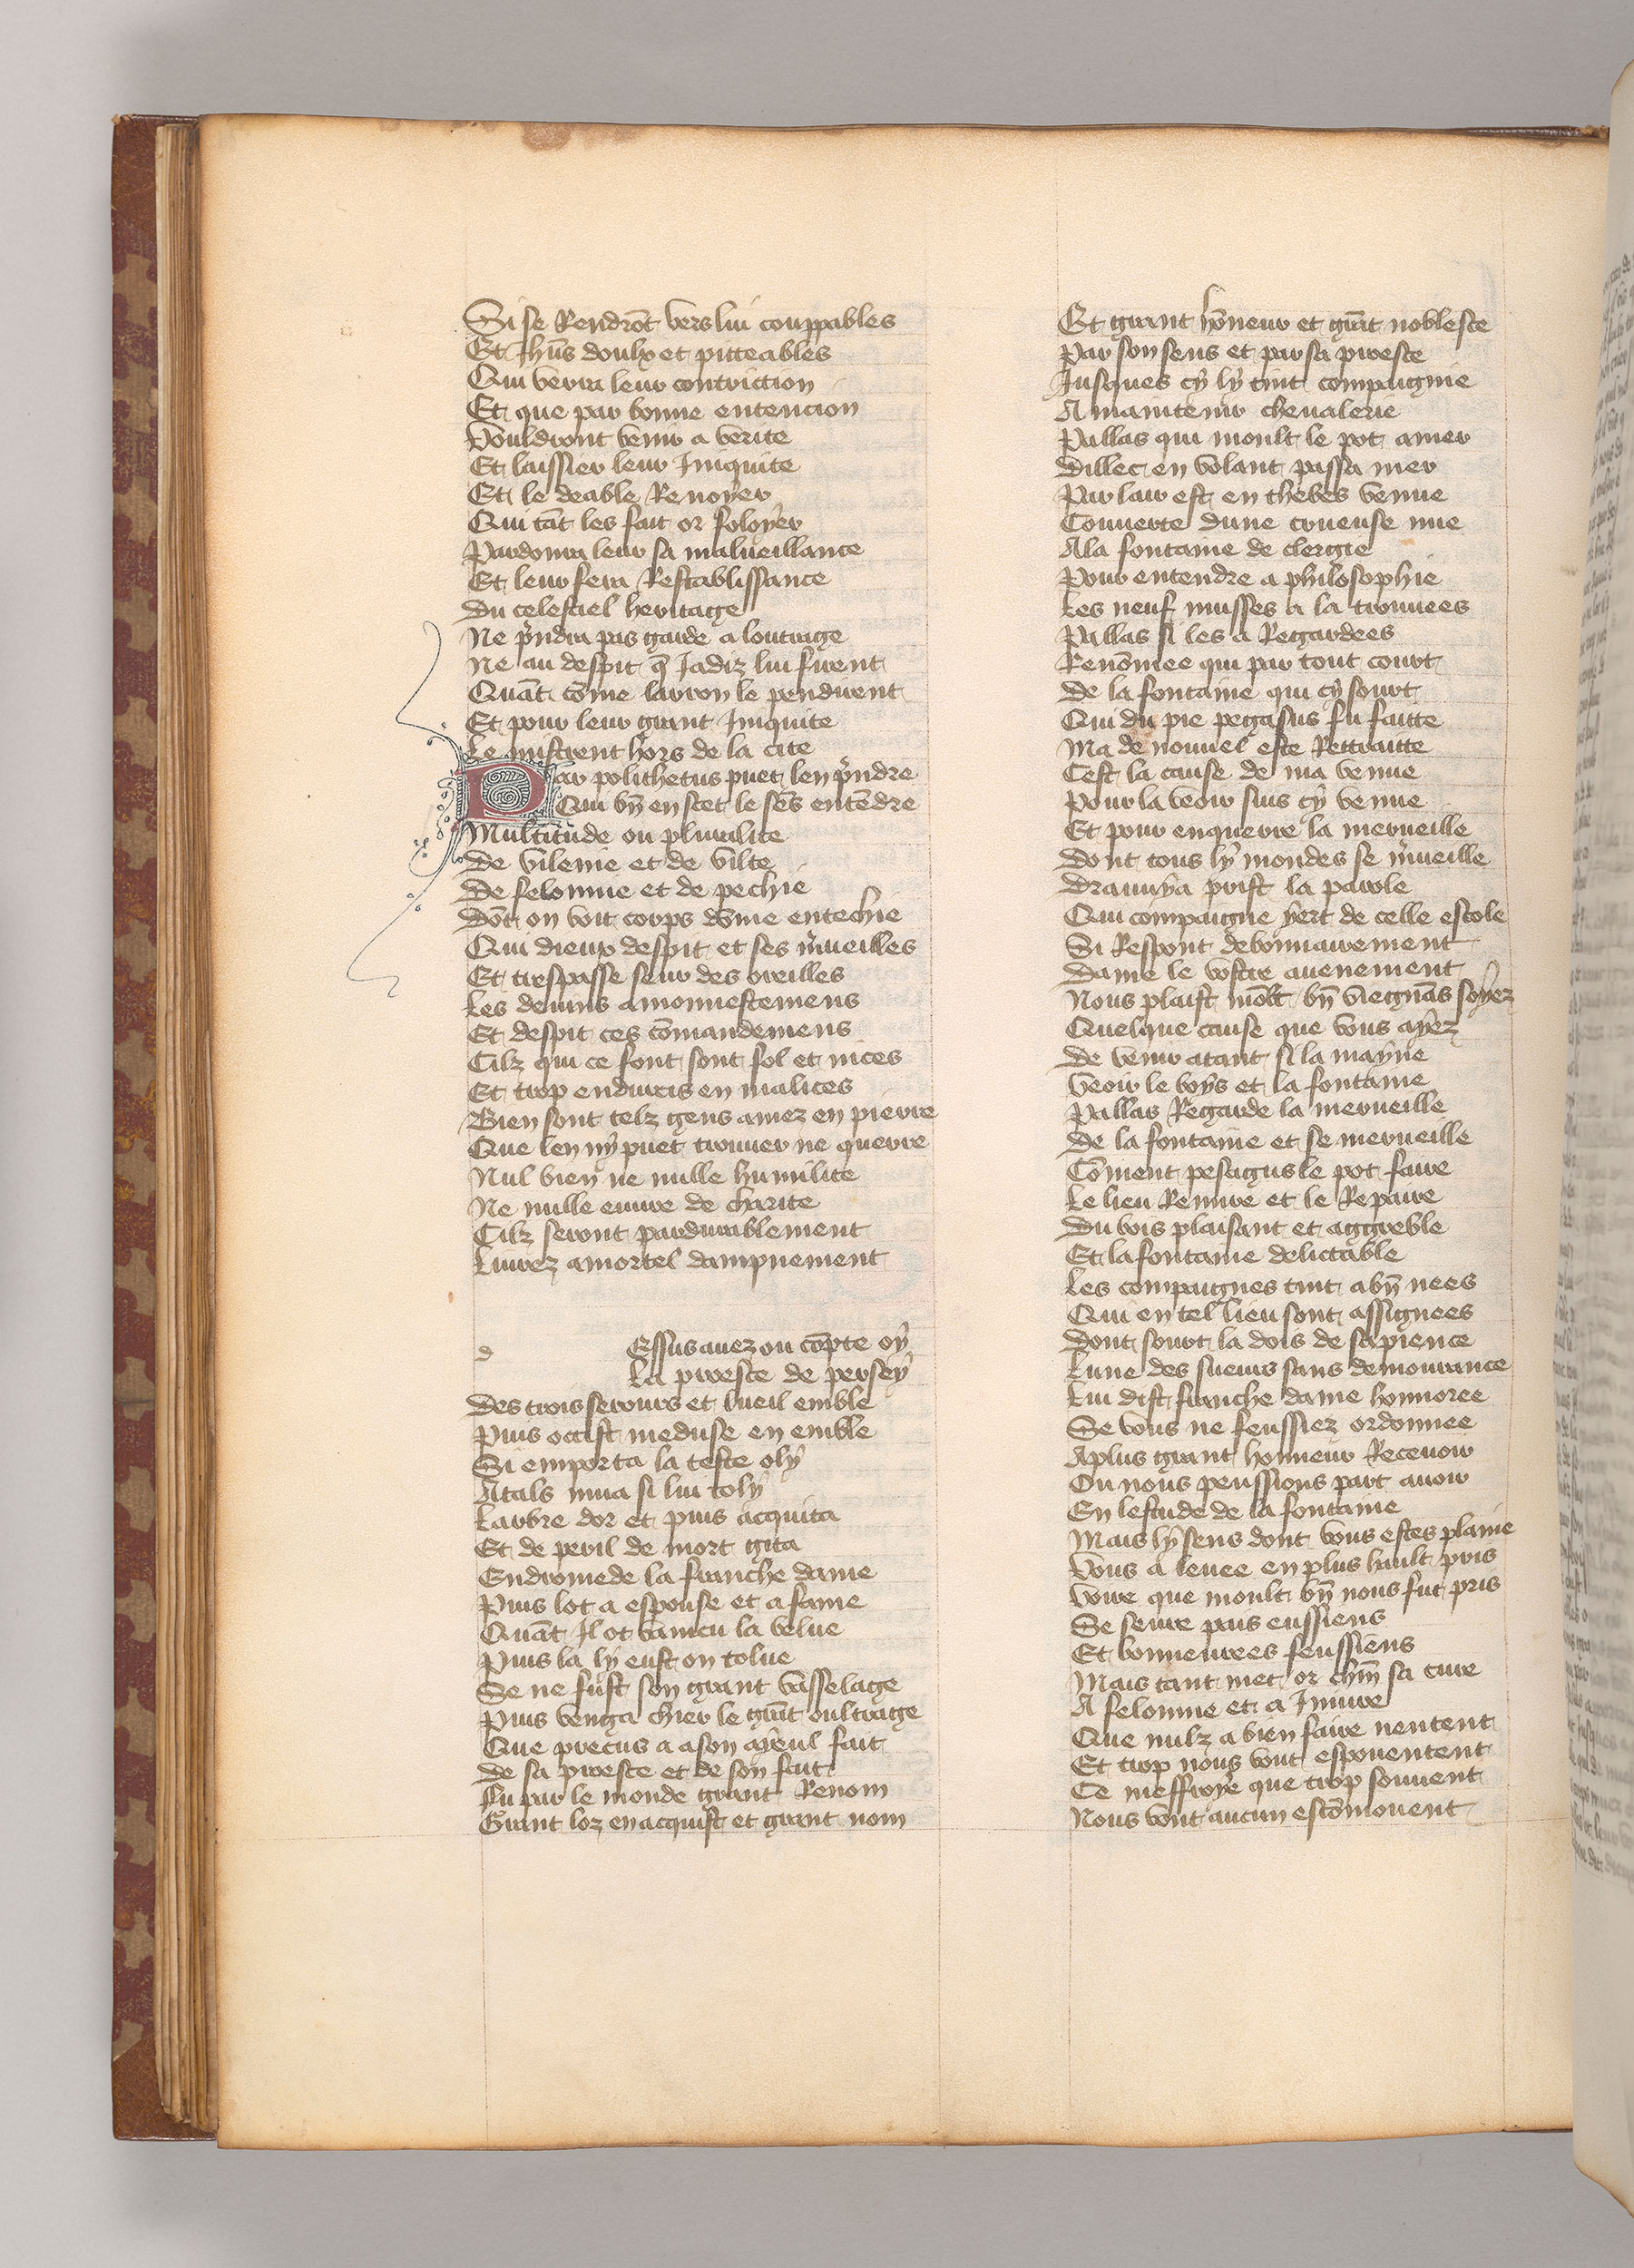 Si se Rendrōt vers lui couppables
Et Jhūs doulx et piteables
Qui verra leur contriction
Et que par bonne entencion
Vouldront venir a verite
Et laissier leur Iniquite
Et le deable Renoyer
Qui tāt les fait or foloyer
Pardonra leur sa malveillance
Et leur fera Restablissance
Du celestiel heritage
Ne p̄ndra pas garde a loutrage
Ne au despit q̄ Jadiz lui firent
Quāt cōme larron le pendirent
Et pour leur grant Iniquite
Le mistrent hors de la cite
Par polithetus puet len p̄ndre
Qui bn̄ en scet le sēs entēdre
Multitude ou pluralite
De vilenie et de vilte
De felonnie et de pechie
Dōt on voit corps dōme entechie
Qui dieux despit et ses m̄veilles
Et trespasse seur des oreilles
Les devins amonnestemens
Et despit ces cōmandemens
Cilz qui ce font sont fol et nices
Et trop endurcis en malices
Bien sont telz gens amez en pierre
Que len ny puet trouver ne querre
Nul bien ne nulle humilite
Ne nulle euvre de charite
Cilz seront pardurablement
Livrez a mortel dampnement
d Essus avez ou cōpte oy
La proesce de persey
Des trois serours et lueil emble
Puis occist meduse en emble
Si emporta la teste o ly
Atals mua si lui toly
Larbre dor et puis acquita
Et de peril de mort gita
Endromede la franche dame
Puis lot a espouse et a fame
Quāt Il ot vaincu la belue
Puis la ly eust on tolue
Se ne fust son grant vasselage
Puis venga chier le grāt oultrage
Que precus a a son ayeul fait
De sa proesce et de son fait
Fu par le monde grant Renom
Grant loz en acquist et grant nom
Et grant hōneur et grāt noblesce
Par son sens et par sa proesce
Jusques cy ly tint compaignie
A maintenir chevalerie
Pallas qui moult le pot amer
Dillec en volant passa mer
Par lair est en thebes venue
Couverte dune creuse nue
A la fontaine de clergie
Pour entendre a philosophie
Les neuf musses a la trouvees
Pallas si les a Regardees
Renōmee qui par tout court
De la fontaine qui cy sourt
Qui du pie pegasus fu faitte
Ma de nouvel este Rettraitte
Cest la cause de ma venue
Pour la veoir suis cy venue
Et pour enquerre la merveille
Dont tous ly mondes se m̄veille
Draunya prist la parole
Qui compaigne yert de celle escole
Si Respont debonnairement
Dame le vostre avenement
Nous plaist mōlt bn̄ viegnās soyez
Quelque cause que vous ayez
De venir atant si la mayne
Veoir le boys et la fontaine
Pallas Regarde la merveille
De la fontaine et se merveille
Cōment pesagus le pot faire
Le lieu Remire et le Repaire
Du bois plaisant et aggreble
Et la fontaine delictable
Les compaignes tint a bn̄ nees
Qui en tel lieu sont assignees
Dont sourt la dois de sapience
Lune des sueurs sans demourance
Lui dist franche dame honnoree
Se vous ne feussiez ordonnee
A plus grant honneur Recevoir
Ou nous peussions part avoir
En lestude de la fontaine
Mais ly sens dont vous estes plaine
Vous a levee en plus hault pris
Voire que moult bn̄ nous fut pris
Se seure pais eussiens
Et bonneurees feussiens
Mais tant met or chm̄ sa cure
A felonnie et a Iniure
Que nulz a bien faire nentent
Et trop nous vont espouentent
Ce meffroye que trop souvent
Nous vont aucun escōmouent